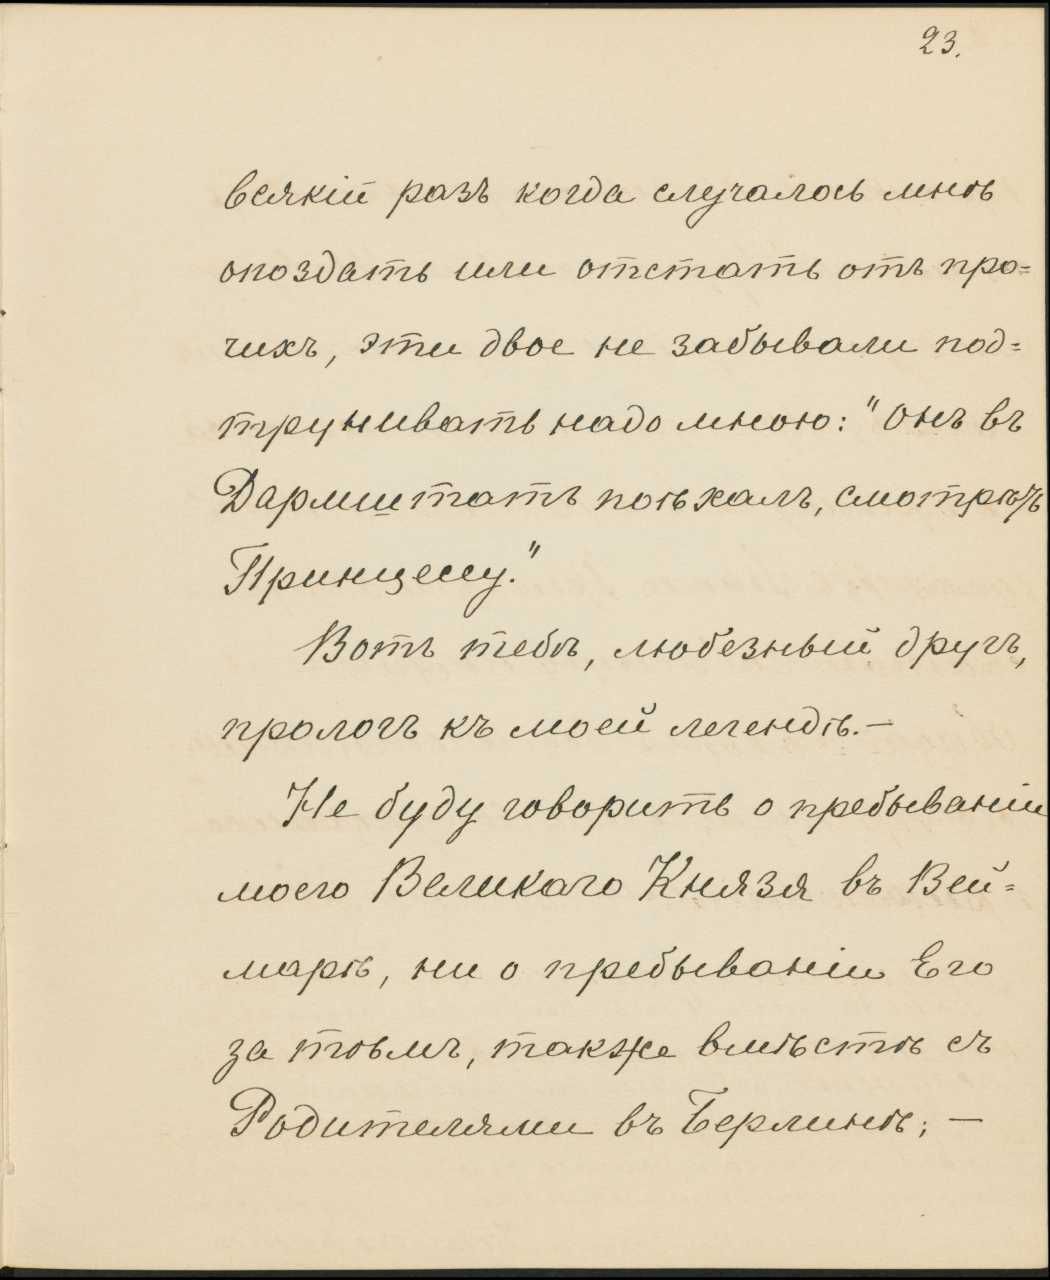 23.
всякій разъ когда случалось мнѣ
опоздать или отстать отъ про=
чихъ, эти двое не забывали под=
трунивать надо мною: "Онъ въ
Дармштатъ поѣхалъ, смотрѣть
Принцессу."
Вотъ тебѣ, любезный другъ,
прологъ къ моей легендѣ. —
Не буду говорить о пребываніи
моего Великаго Князя въ Вей=
марѣ, ни о пребываніи Его
за тѣмъ, также вмѣстѣ съ
Родителями въ Берлинѣ; —